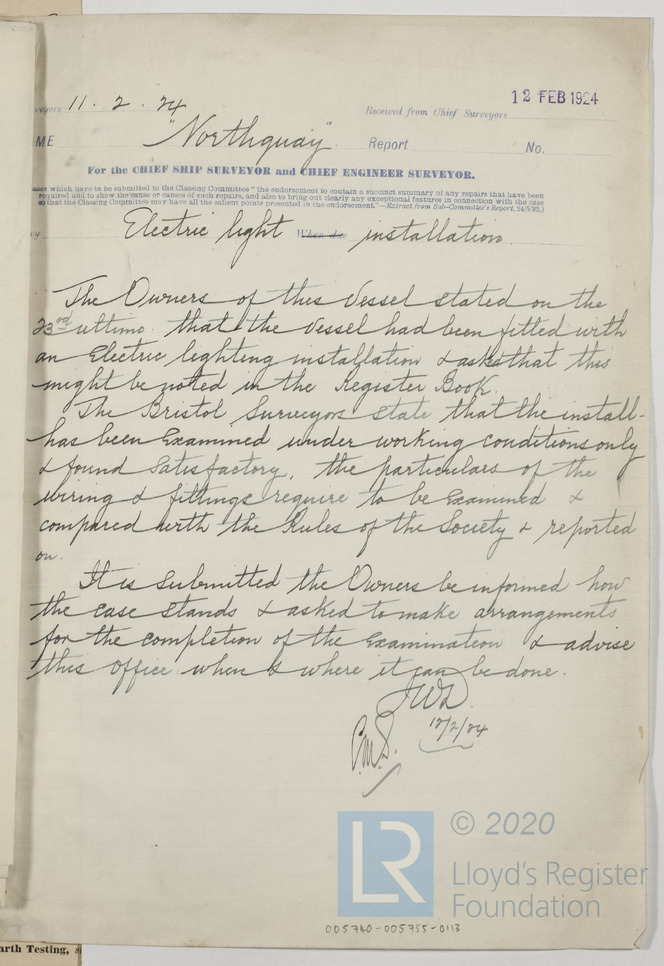 veyors 11. 2. 24
12 FEB 1924
Received from Chief Surveyors
ME "Northquay" Report No.
For the CHIEF SHIP SURVEYOR and CHIEF ENGINEER SURVEYOR.
ases which have to be submitted to the Classing Committee "the endorsement to contain a succinct summary of any repairs that have been
required and to show the cause or causes of such repairs, and also to bring out clearly any exceptional features in connection with the case
so that the Classing Committee may have all the salient points presented in the endorsement."—Extract from Sub-Committee's Report, 24/5/92.)
Electric light When due installation.
The Owners of this Vessel stated on the
23rd ultimo that the Vessel had been fitted with
an Electric lighting installation & asks that this
might be noted in the Register Book.
The Bristol Surveyors state that the install-
has been Examined under working conditions only
& found satisfactory, the particulars of the
wiring & fittings require to be Examined &
compared with the Rules of the Society & reported
on.
It is submitted the Owners be informed how
the case stands & asked to make arrangements
for the completion of the Examination & advise
this Office when & where it can be done.
JWD.
12/2/24
P.M.S.
LR
© 2020
Lloyd's Register
Foundation
005740-005755-0113
arth Testing,